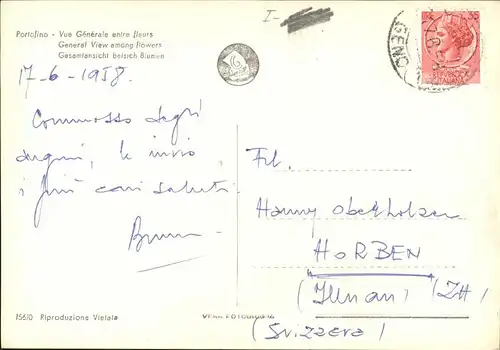 I-
Portofino - Vue Générale entre fleurs
General View among flowers
Gesamtansicht beisich Blumen
17-6-1958.
Commosso degli
auguri, le invio
i più cari saluti
Bruno
GENO
Frl.
Hanny Oberholzer
HORBEN
(Illnau) (ZH)
(Svizzera)
15610 Riproduzione Vietata
VERA FOTOGRAFIA